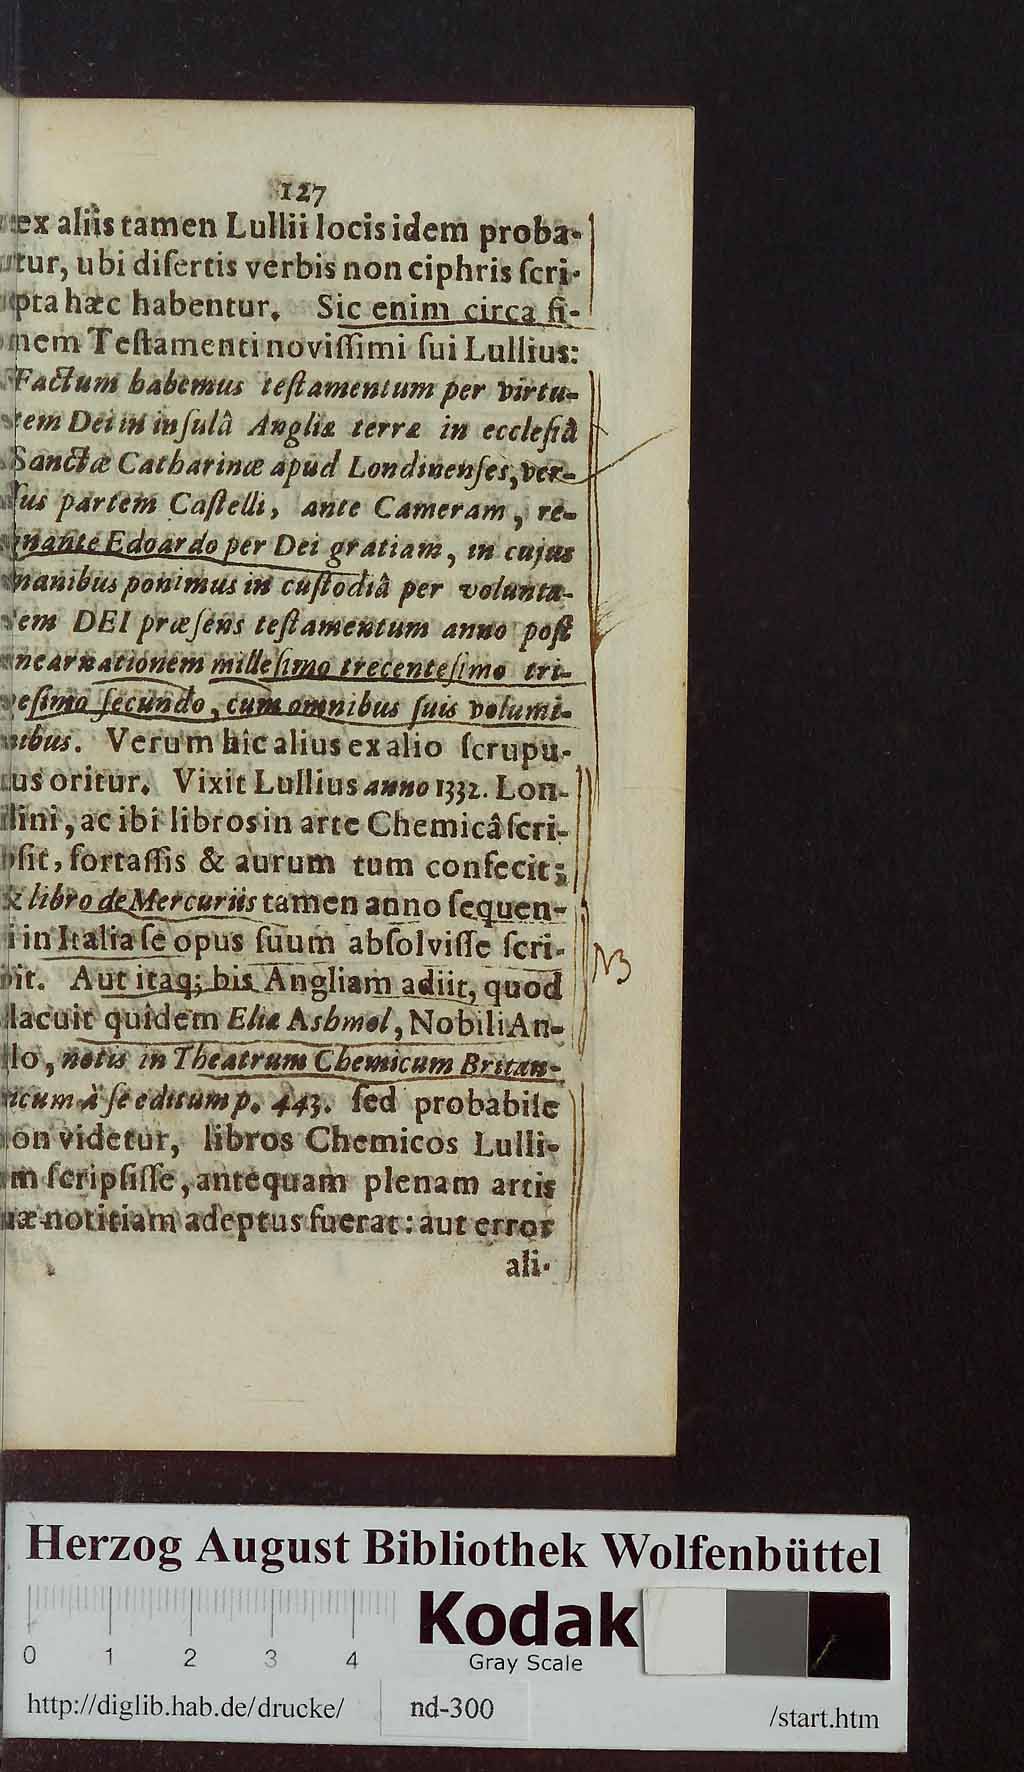 127
ex aliis tamen Lullii locis idem proba-
tur, ubi disertis verbis non ciphris scri-
pta hæc habentur. Sic enim circa fi-
nem Testamenti novissimi sui Lullius:
Factum habemus testamentum per virtu-
tem Dei in insulâ Angliæ terræ in ecclesiâ
Sanctæ Catharinæ apud Londinenses, ver-
sus partem Castelli, ante Cameram, re-
gnante Edoardo per Dei gratiam, in cujus
manibus ponimus in custodiâ per volunta-
tem DEI præsens testamentum anno post
incarnationem millesimo trecentesimo tri-
gesimo secundo, cum omnibus suis volumi-
nibus. Verum hîc alius ex alio scrupu-
lus oritur. Vixit Lullius anno 1332. Lon-
dini, ac ibi libros in arte Chemicâ scri-
psit, fortassis & aurum tum confecit;
& libro de Mercuriis tamen anno sequen-
i in Italia se opus suum absolvisse scri-
bit. Aut itaq; bis Angliam adiit, quod
lacuit quidem Eliæ Ashmol, Nobili An-
lo, notis in Theatrum Chemicum Britan-
icum à se editum p. 443. sed probabile
on videtur, libros Chemicos Lulli-
m scripsisse, antequam plenam artis
uæ notitiam adeptus fuerat: aut error
ali-
NB
Herzog August Bibliothek Wolfenbüttel
Kodak
Gray Scale
0 1 2 3 4
http://diglib.hab.de/drucke/ nd-300 /start.htm